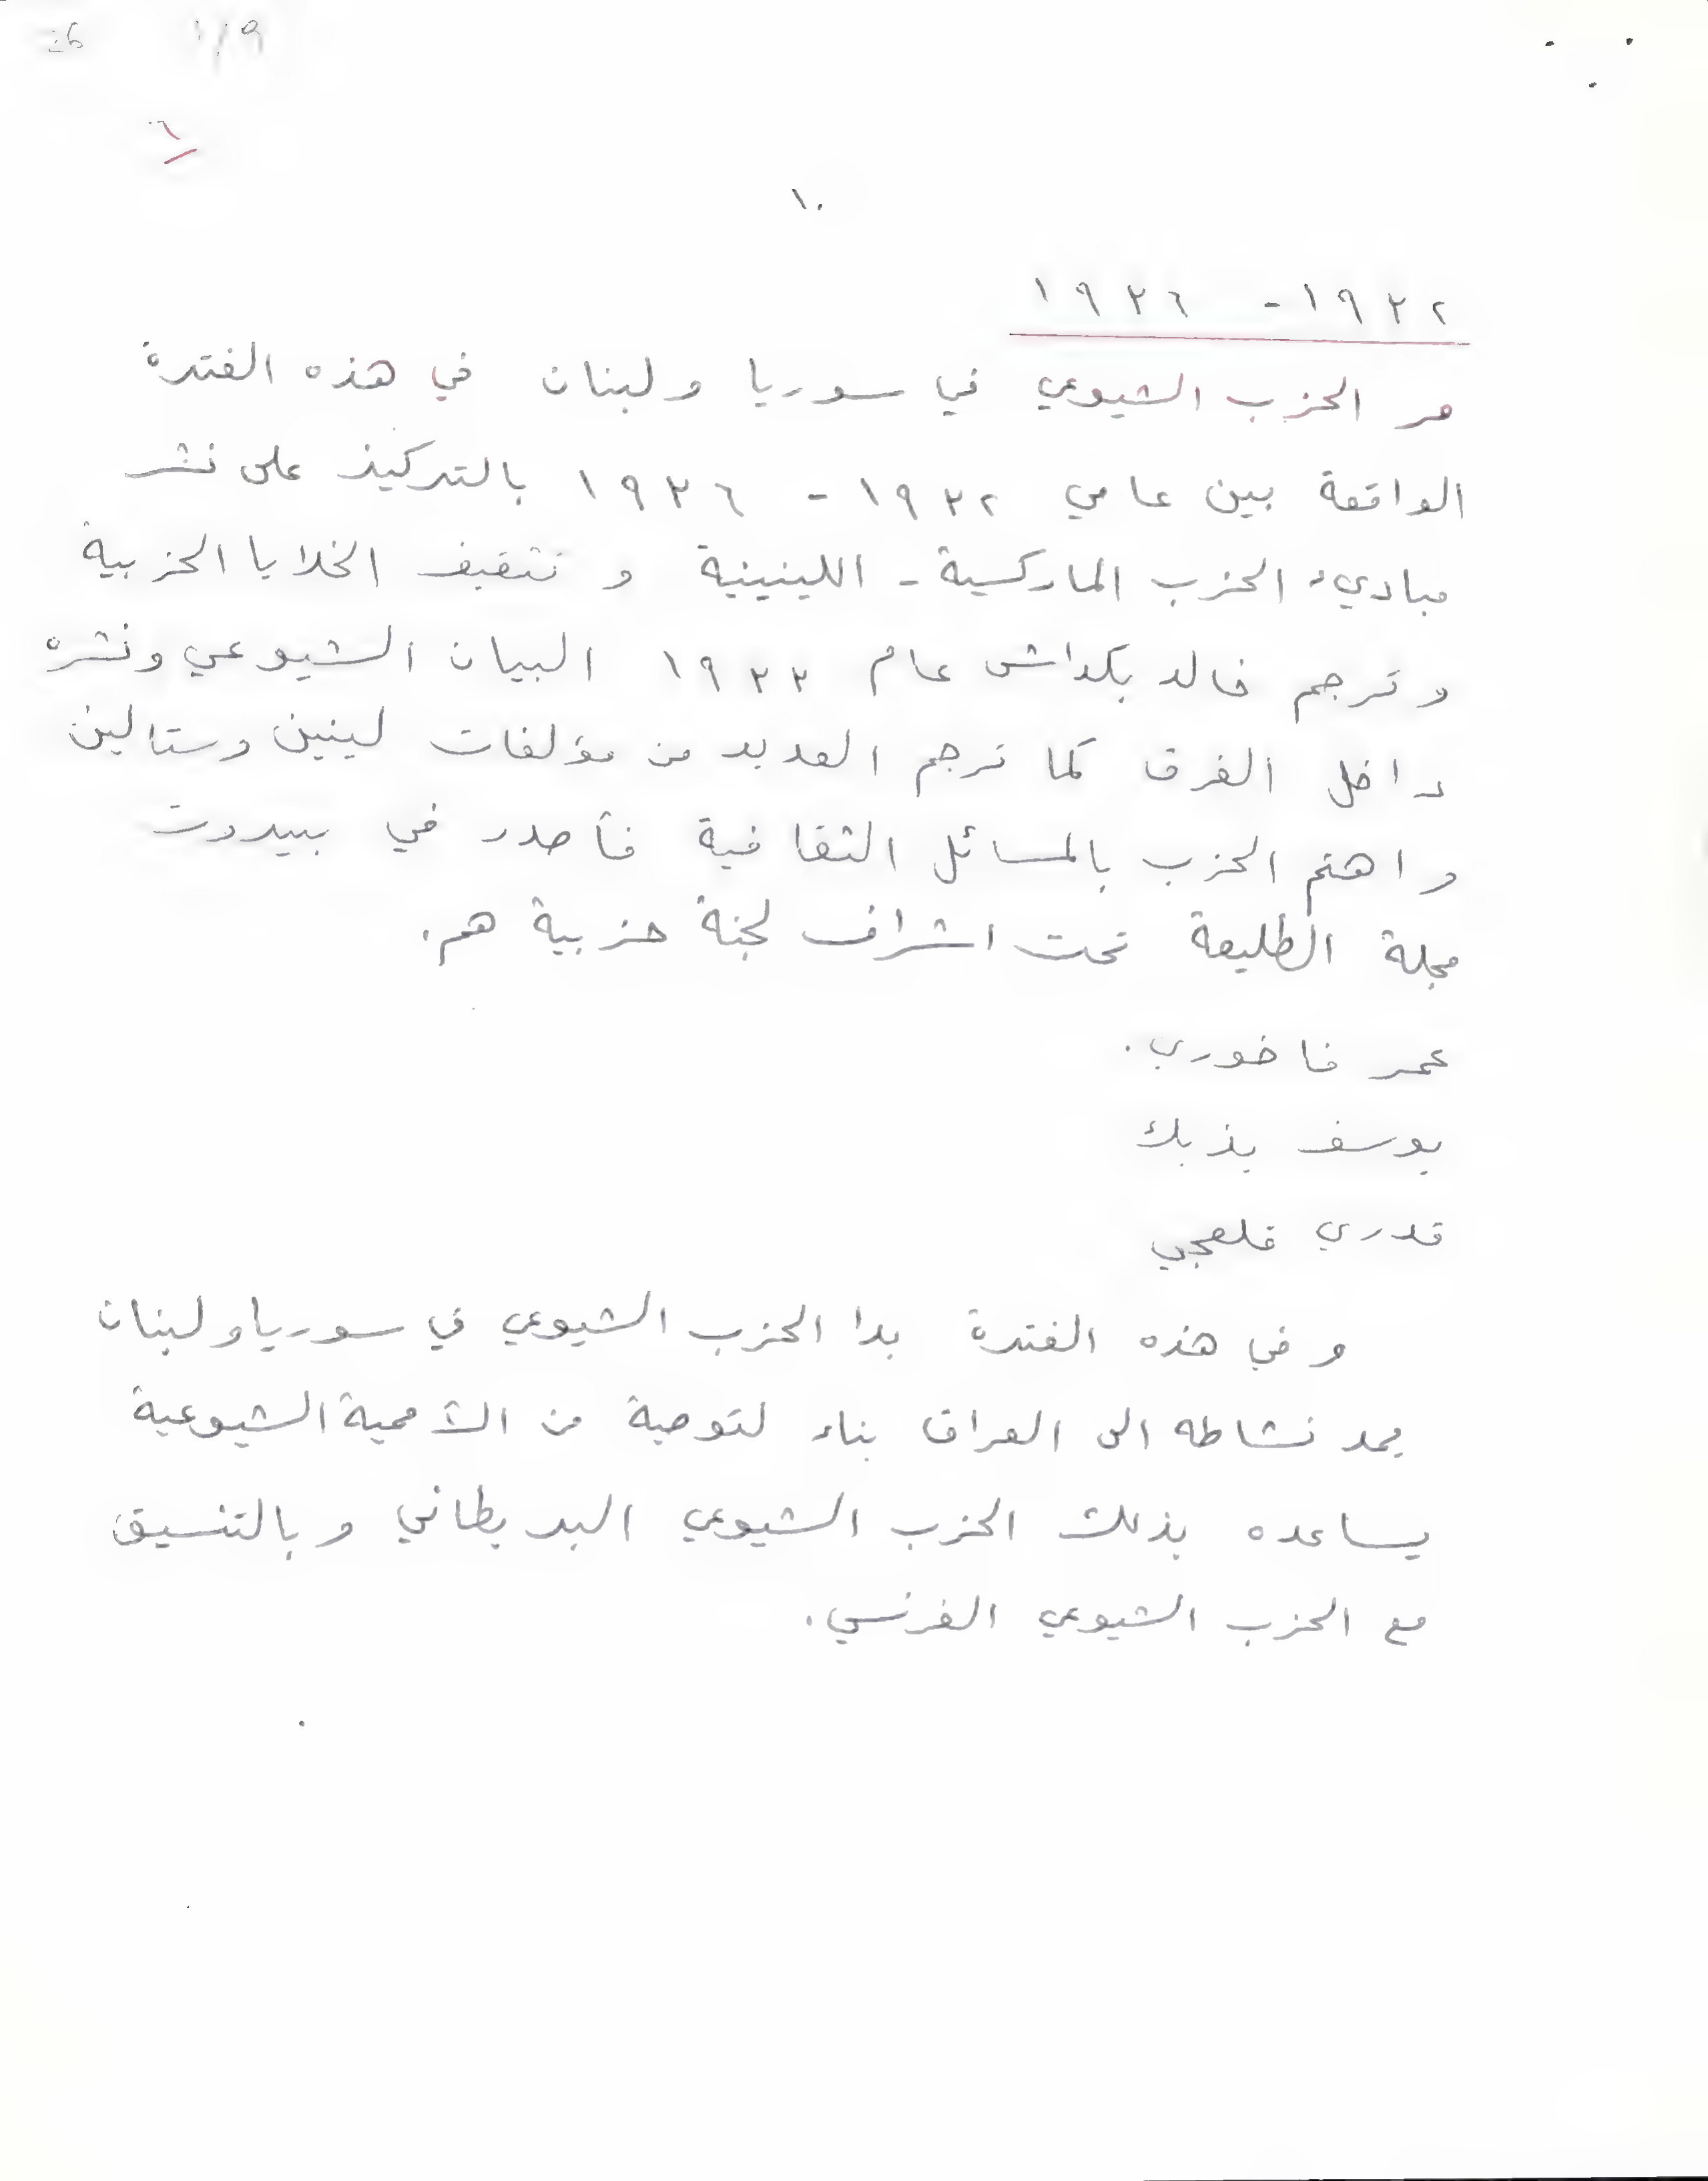 ١٠
١٩٣٢ - ١٩٣٦
مر الحزب الشيوعي في سوريا ولبنان في هذه الفترة
الواقعة بين عامي ١٩٣٢ - ١٩٣٦ بالتركيز على نشر
مباديء الحزب الماركسية - اللينينية و تثقيف الخلايا الحزبية
وترجم خالد بكداش عام ١٩٣٣ البيان الشيوعي ونشره
داخل الفرق كما ترجم العديد من مؤلفات لينين وستالين
واهتم الحزب بالمسائل الثقافية فأصدر في بيروت
مجلة الطليعة تحت اشراف لجنة حزبية هم.
عمر فاخوري.
يوسف يزبك
قدري قلعجي
وفي هذه الفترة بدا الحزب الشيوعي في سوريا ولبنان
يمد نشاطه الى العراق بناء لتوصية من الأممية الشيوعية
يساعده بذلك الحزب الشيوعي البريطاني وبالتنسيق
مع الحزب الشيوعي الفرنسي.